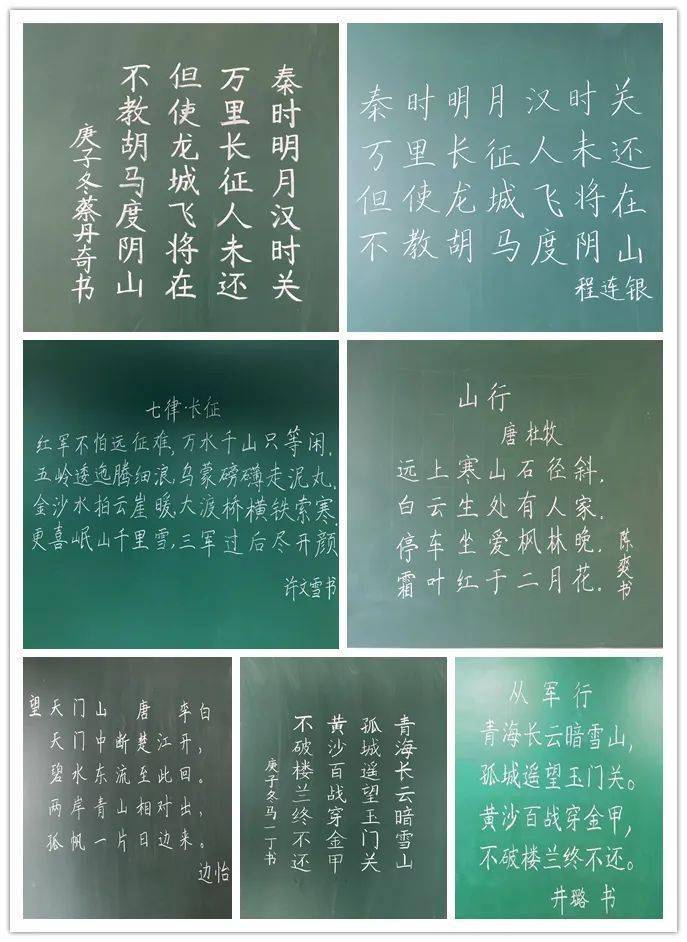 秦时明月汉时关
万里长征人未还
但使龙城飞将在
不教胡马度阴山
庚子冬蔡丹奇书
秦时明月汉时关
万里长征人未还
但使龙城飞将在
不教胡马度阴山
程连银
七律·长征
红军不怕远征难,万水千山只等闲.
五岭逶迤腾细浪,乌蒙磅礴走泥丸,
金沙水拍云崖暖,大渡桥横铁索寒.
更喜岷山千里雪,三军过后尽开颜
许文雪书
山行
唐 杜牧
远上寒山石径斜,
白云生处有人家.
停车坐爱枫林晚,
霜叶红于二月花.
陈爽书
望天门山 唐 李白
天门中断楚江开,
碧水东流至此回。
两岸青山相对出,
孤帆一片日边来。
边怡
青海长云暗雪山
孤城遥望玉门关
黄沙百战穿金甲
不破楼兰终不还
庚子冬马一丁书
从军行
青海长云暗雪山,
孤城遥望玉门关。
黄沙百战穿金甲,
不破楼兰终不还。
井璐 书